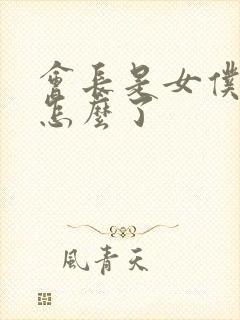 會長是女僕
怎麼了
風青天